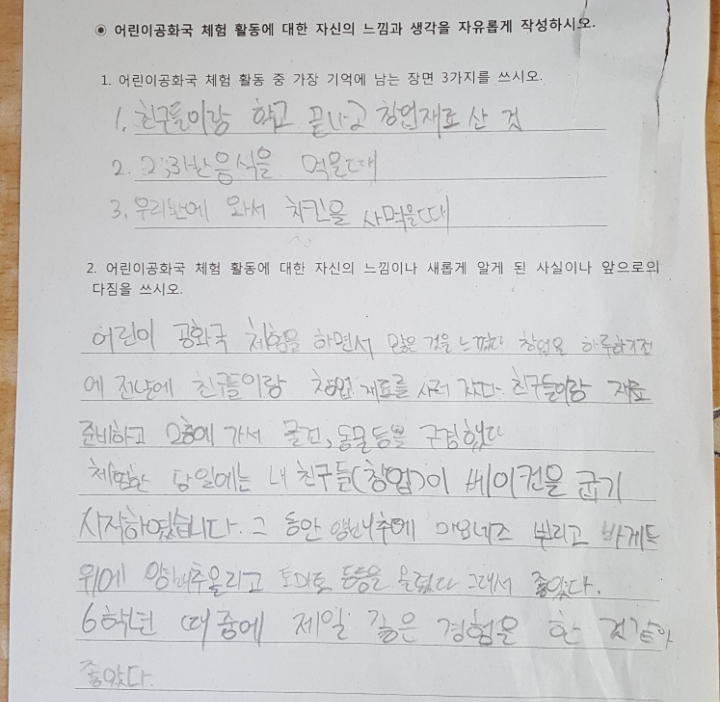 ◉ 어린이공화국 체험 활동에 대한 자신의 느낌과 생각을 자유롭게 작성하시오.
1. 어린이공화국 체험 활동 중 가장 기억에 남는 장면 3가지를 쓰시오.
1. 친구들이랑 학교 끝나고 창업재료 산 것
2. 2:3반음식을 먹을때
3. 우리반에 와서 치킨을 사먹을때
2. 어린이공화국 체험 활동에 대한 자신의 느낌이나 새롭게 알게 된 사실이나 앞으로의
다짐을 쓰시오.
어린이 공화국 체험을 하면서 많은 것을 느꼈다 창업을 하루하기전
에 전날에 친구들이랑 창업 재료를 사러 갔다. 친구들이랑 재료
준비하고 2층에 가서 물건, 동물등을 구경했다
체험한 당일에는 내 친구들(창업)이 베이컨을 굽기
시작하였습니다. 그 동안 양배추에 마요네즈 뿌리고 바게트
위에 양배추올리고 토마토 등등을 올렸다 그래서 좋았다.
6학년 때중에 제일 깊은 경험을 한 것같아
좋았다.